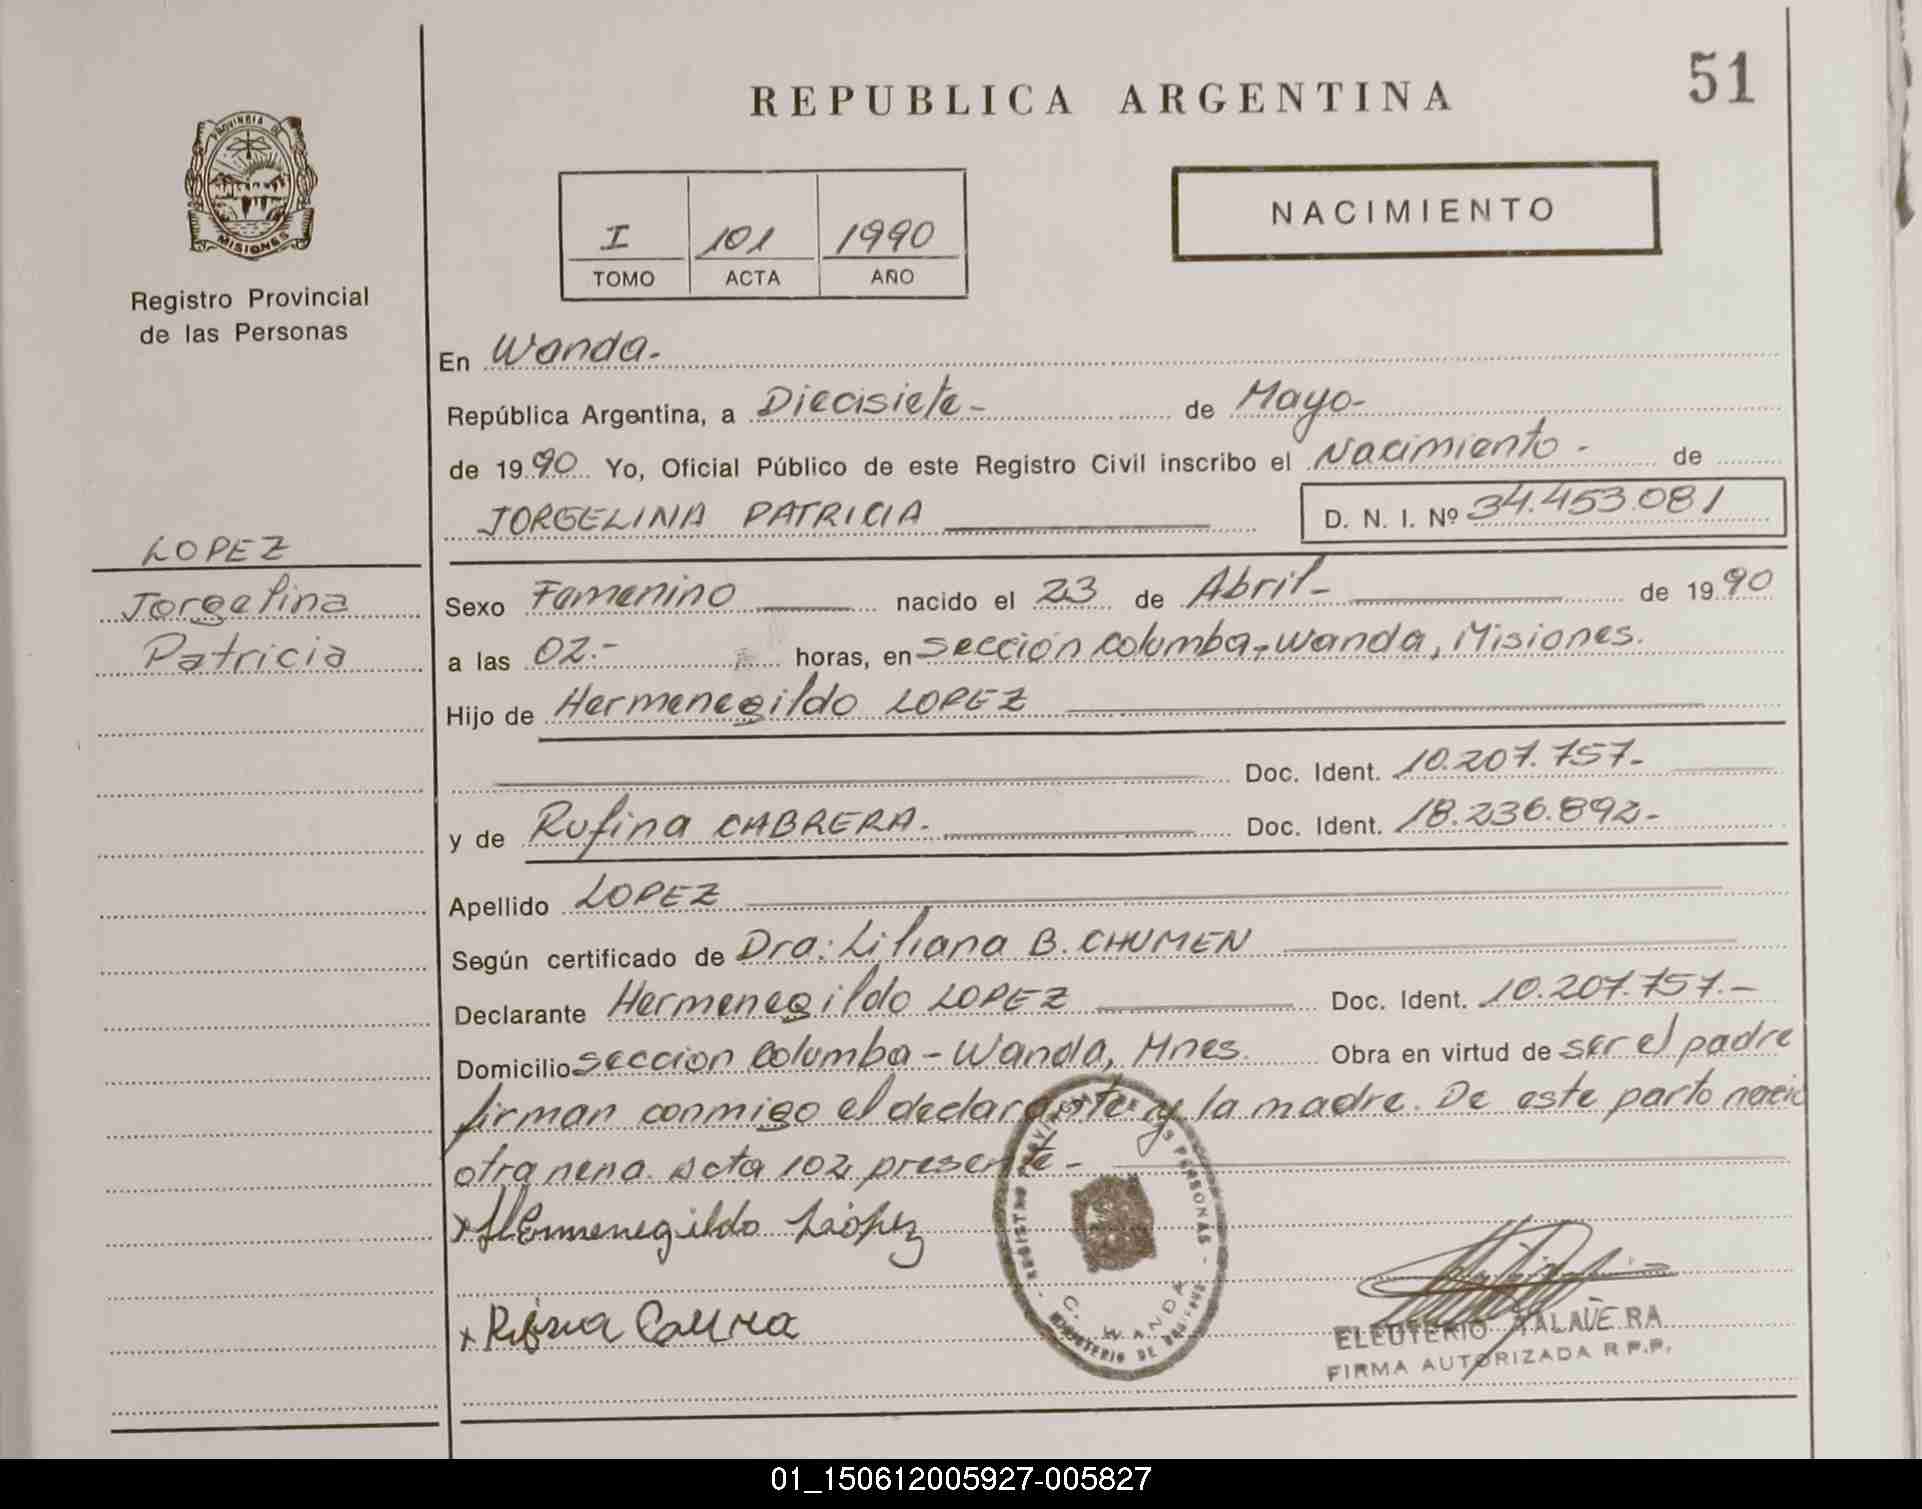 REPUBLICA ARGENTINA
51
PROVINCIA DE
MISIONES
Registro Provincial
de las Personas
I 101 1990
TOMO ACTA AÑO
NACIMIENTO
En Wanda.
República Argentina, a Diecisiete- de Mayo-
de 1990 Yo, Oficial Público de este Registro Civil inscribo el Nacimiento- de
JORGELINA PATRICIA D. N. I. Nº 34.453.081
LOPEZ
Jorgelina
Patricia
Sexo Femenino nacido el 23 de Abril- de 1990
a las 02.- horas, en sección Columba-Wanda, Misiones.
Hijo de Hermenegildo LOPEZ
Doc. Ident. 10.207.757-
y de Rufina CABRERA.- Doc. Ident. 18.236.892-
Apellido LOPEZ
Según certificado de Dra: Liliana B. CHUMEN
Declarante Hermenegildo LOPEZ Doc. Ident. 10.207.757.-
Domicilio seccion Columba-Wanda, Mnes. Obra en virtud de ser el padre
firman conmigo el declarante y la madre. De este parto nació
otra nena. Acta 102 presente-
x Hermenegildo López
x
REGISTRO PROVINCIAL DE LAS PERSONAS
WANDA
ELEUTERIO
FIRMA AUTORIZADA R.P.P.
01_150612005927-005827